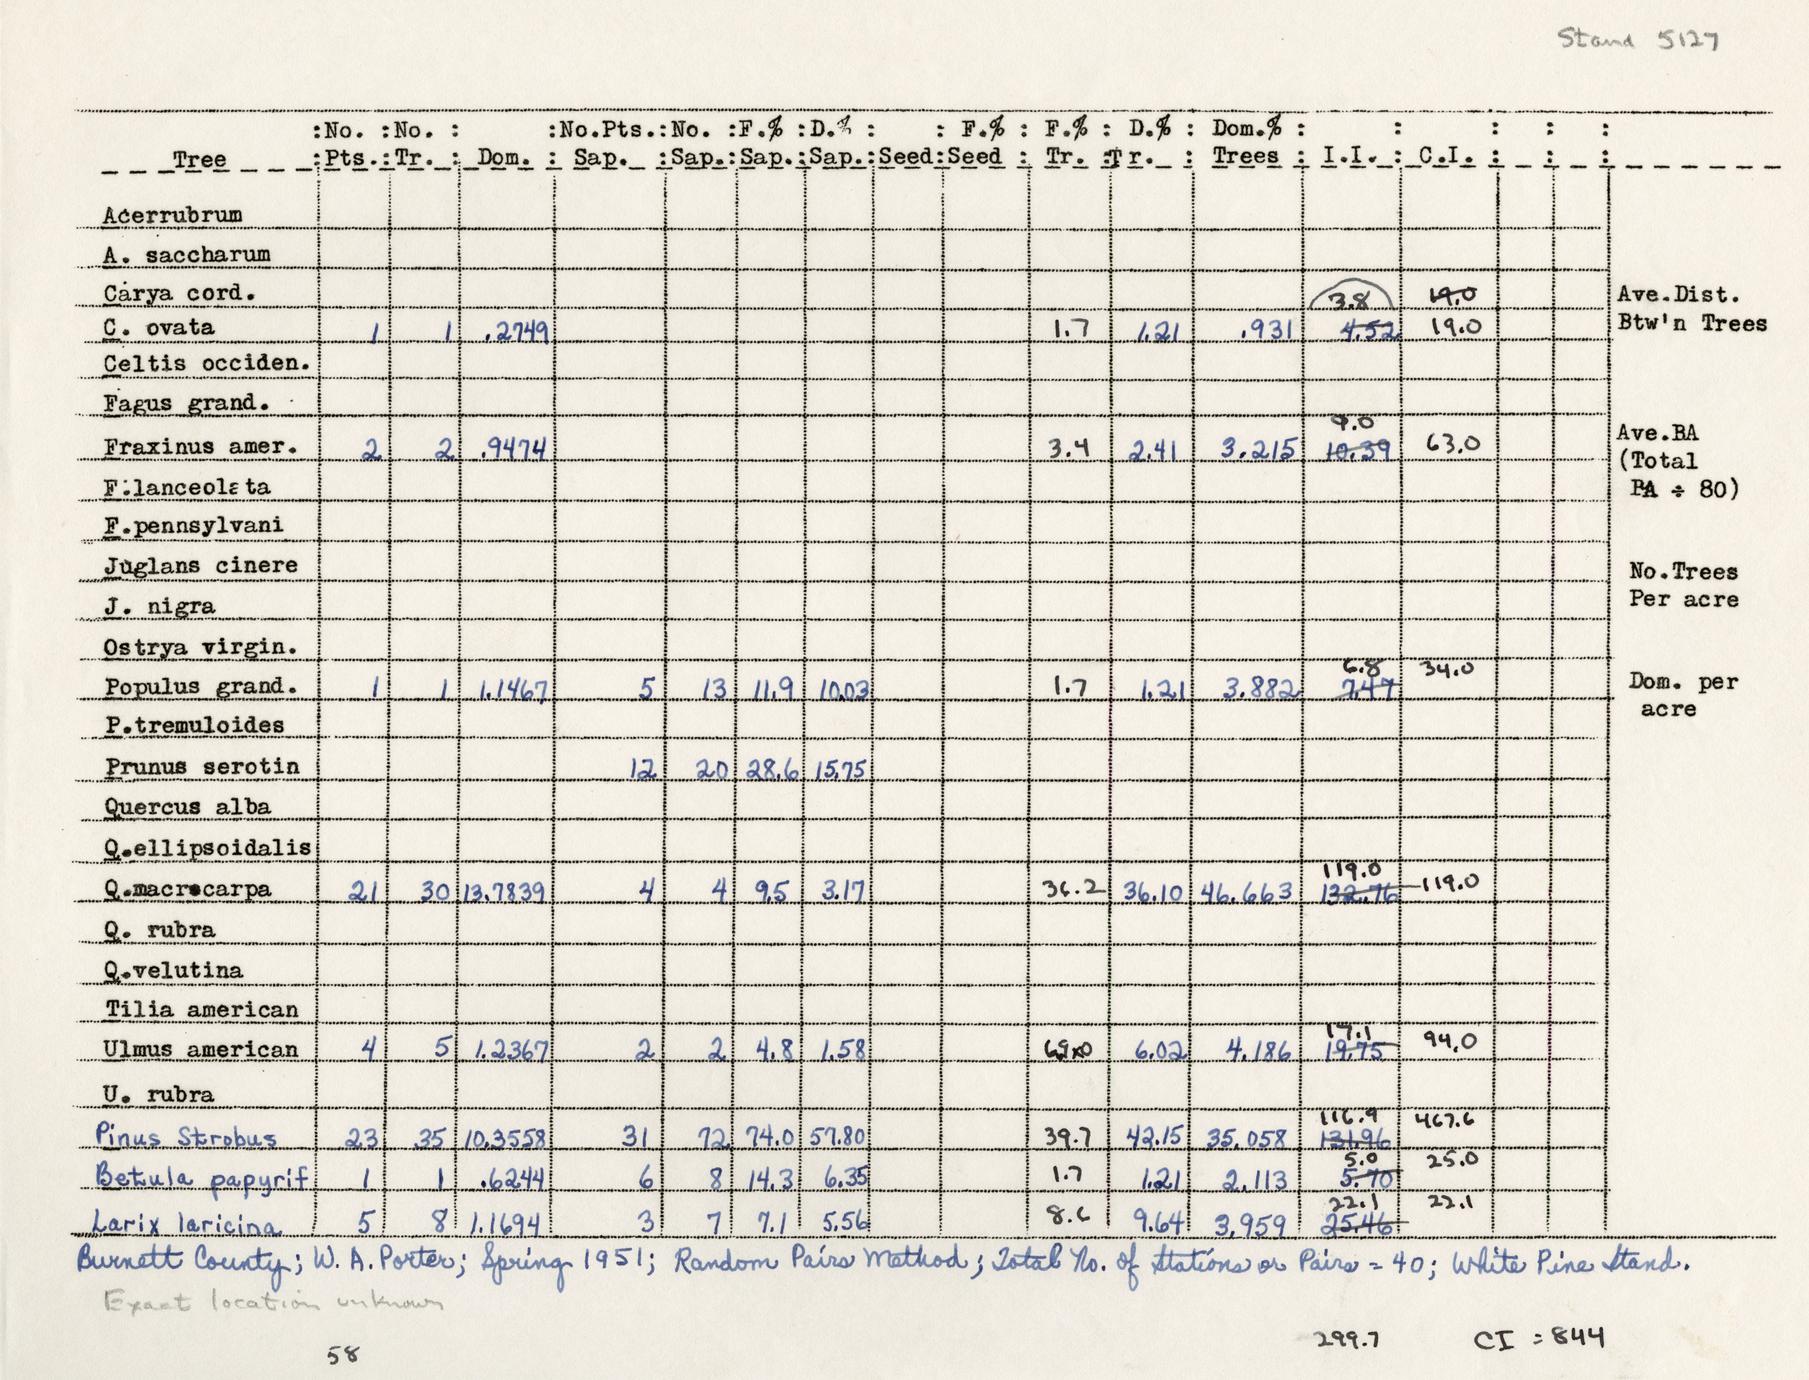 Stand 5127
:No. :No. : :No.Pts.:No. :F.% :D.% : : F.% : F.% : D.% : Dom.% : : : : :
Tree :Pts.:Tr. : Dom. : Sap. :Sap.:Sap.:Sap.:Seed:Seed : Tr. :Tr. : Trees : I.I. : C.I. : : :
Acerrubrum
A. saccharum
Carya cord. 3.8 19.0 Ave.Dist.
C. ovata 1 1 .2749 1.7 1.21 .931 4.52 19.0 Btw'n Trees
Celtis occiden.
Fagus grand.
9.0
Fraxinus amer. 2 2 .9474 3.4 2.41 3.215 10.39 63.0 Ave.BA
(Total
F.lanceolata BA ÷ 80)
F.pennsylvani
Juglans cinere No.Trees
J. nigra Per acre
Ostrya virgin.
6.8 34.0
Populus grand. 1 1 1.1467 5 13 11.9 10.03 1.7 1.21 3.882 7.47 Dom. per
P.tremuloides acre
Prunus serotin 12 20 28.6 15.75
Quercus alba
Q.ellipsoidalis
119.0
Q.macrocarpa 21 30 13.7839 4 4 9.5 3.17 36.2 36.10 46.663 132.76 119.0
Q. rubra
Q.velutina
Tilia american
17.1
Ulmus american 4 5 1.2367 2 2 4.8 1.58 6.02 4.186 19.75 94.0
U. rubra
116.9 467.6
Pinus Strobus 23 35 10.3558 31 72 74.0 57.80 39.7 42.15 35.058 131.96
5.0 25.0
Betula papyrif 1 1 .6244 6 8 14.3 6.35 1.7 1.21 2.113 5.70
22.1 22.1
Larix laricina 5 8 1.1694 3 7 7.1 5.56 8.6 9.64 3.959 25.46
Burnett County; W. A. Porter; Spring 1951; Random Pairs Method; Total No. of Stations or Pairs = 40; White Pine Stand.
Exact location unknown
299.7 CI = 844
58